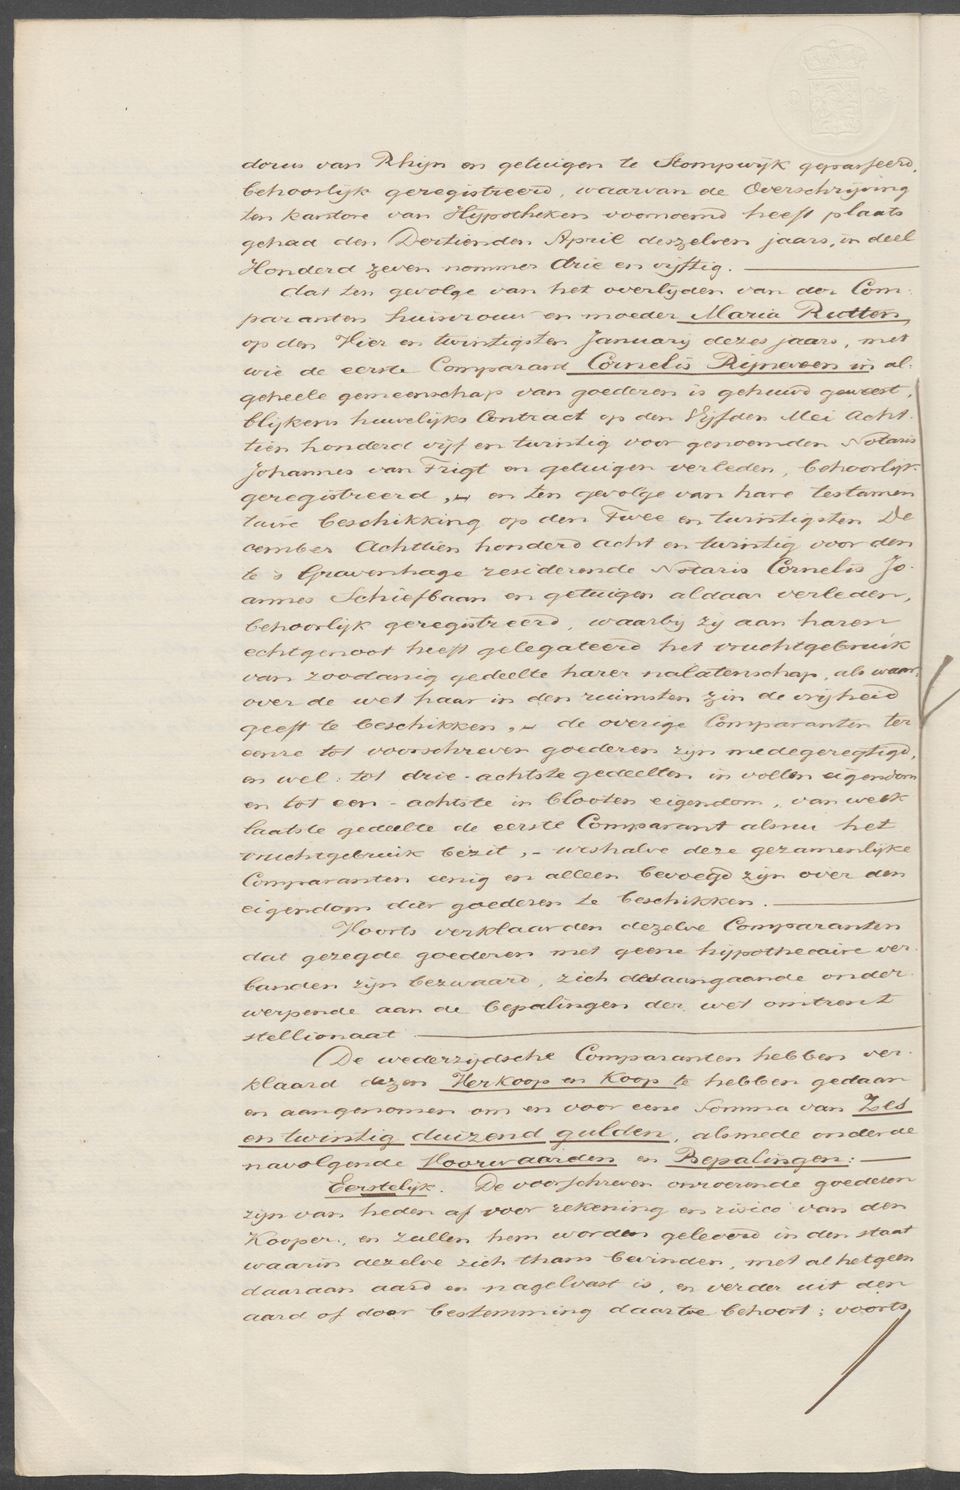 dorus van Rhijn en getuigen te Stompwijk gepasseerd,
behoorlijk geregistreerd, waarvan de Overschrijving
ten kantore van Hypotheken voornoemd heeft plaats
gehad den Dertienden April deszelven jaars, in deel
Honderd zeven nommer drie en vijftig.
dat ten gevolge van het overlijden van der Com-
paranten huisvrouw en moeder Maria Rutten,
op den Vier en twintigsten January dezes jaars, met
wie de eerste Comparand Cornelis Rijneveen in al-
geheele gemeenschap van goederen is gehuwd geweest,
blijkens huwelijks Contract op den Vijfden Mei Acht-
tien honderd vijf en twintig voor genoemden Notaris
Johannes van Frigt en getuigen verleden, behoorlijk
geregistreerd, - en ten gevolge van hare testamen
taire beschikking op den Twee en twintigsten De
cember Achttien honderd acht en twintig voor den
te 's Gravenhage residerende Notaris Cornelis Jo-
annes Schiefbaan en getuigen aldaar verleden,
behoorlijk geregistreerd, waarbij zij aan haren
echtgenoot heeft gelegateerd het vruchtgebruik
van zoodanig gedeelte harer nalatenschap, als waar-
over de wet haar in den ruimsten zin de vrijheid
geeft te beschikken, - de overige Comparanten ter
eenre tot voorschreven goederen zijn medegeregtigd,
en wel: tot drie-achtste gedeelten in vollen eigendom
en tot een-achtste in blooten eigendom, van welk
laatste gedeelte de eerste Comparant alsnu het
vruchtgebruik bezit, - weshalve deze gezamenlijke
Comparanten eenig en alleen bevoegd zijn over den
eigendom dier goederen te beschikken.
Voorts verklaarden dezelve Comparanten
dat gezegde goederen met geene hypothecaire ver-
banden zijn bezwaard, zich desaangaande onder-
werpende aan de bepalingen der wet omtrent
stellionaat
De wederzijdsche Comparanten hebben ver-
klaard dezen Verkoop en Koop te hebben gedaan
en aangenomen om en voor eene Somma van Zes
en twintig duizend gulden, alsmede onder de
navolgende Voorwaarden en Bepalingen:
Eerstelijk. De voorschreven onroerende goederen
zijn van heden af voor rekening en risico van den
Kooper, en zullen hem worden geleverd in den staat
waarin dezelve zich thans bevinden, met al hetgeen
daaraan aard en nagelvast is, en verder uit den
aard of door bestemming daartoe behoort; voorts